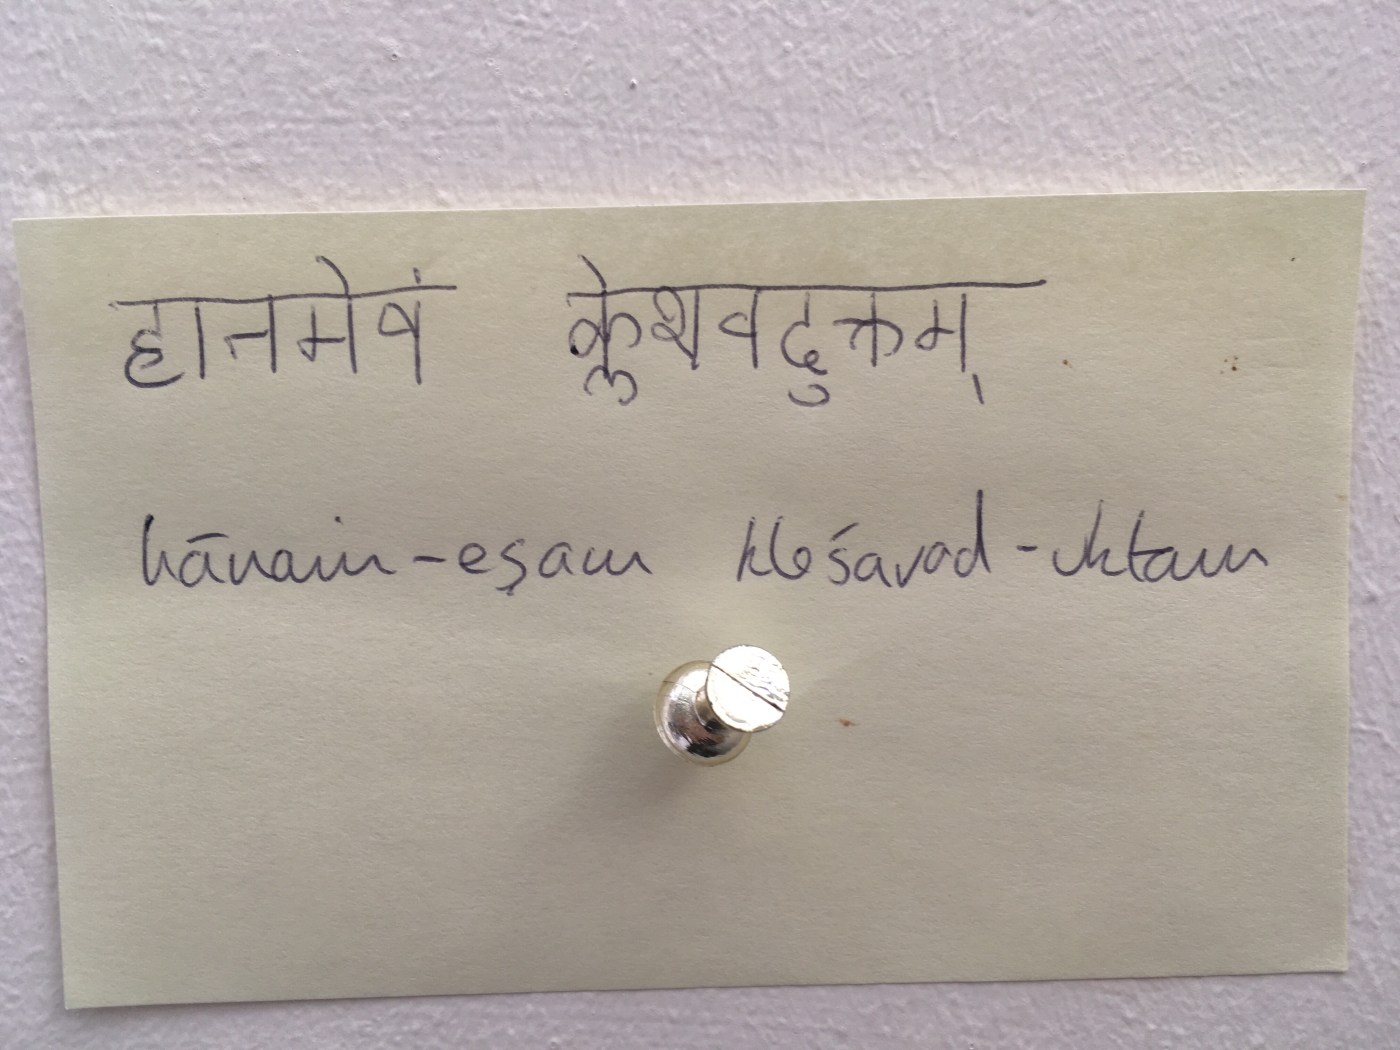 हानमेवं क्लेशवदुक्तम्
hānam-eṣam kleśavad-uktam